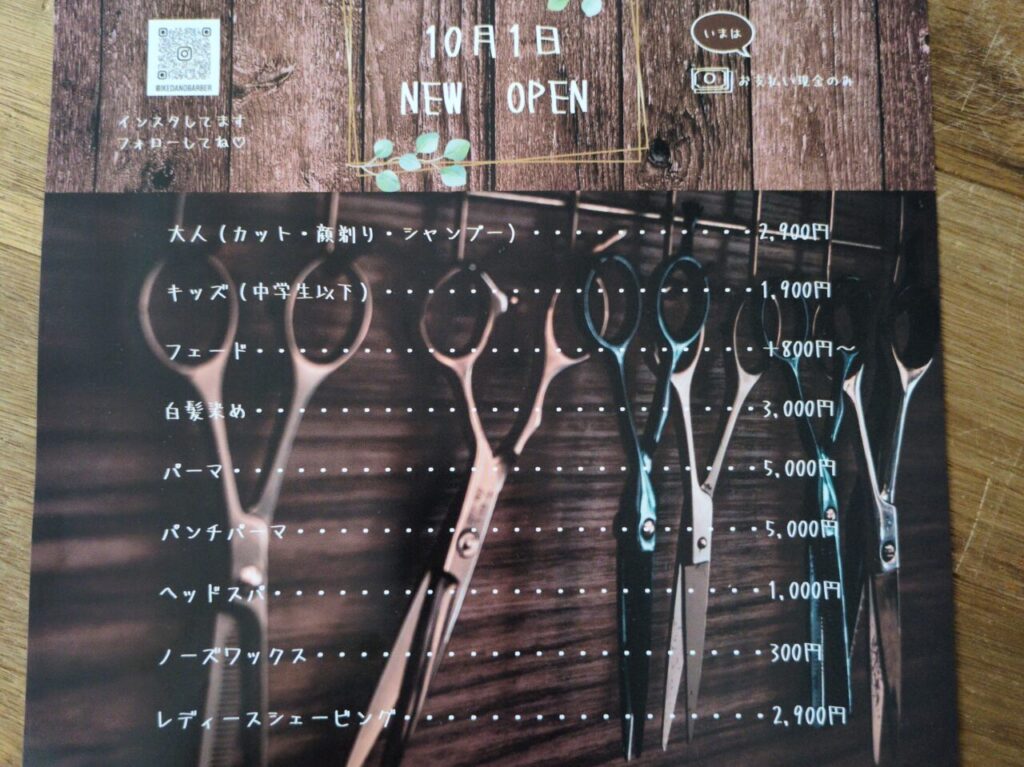 @IKEDANOBARBER
インスタしてます
フォローしてね♡
10月1日
NEW OPEN
いまは
お支払い現金のみ
大人(カット・顔剃り・シャンプー)・・・・・・・・・・・2,900円
キッズ(中学生以下)・・・・・・・・・・・・・・・・・・1,900円
フェード・・・・・・・・・・・・・・・・・・・・・・・・+800円～
白髪染め・・・・・・・・・・・・・・・・・・・・・・・・3,000円
パーマ・・・・・・・・・・・・・・・・・・・・・・・・・5,000円
パンチパーマ・・・・・・・・・・・・・・・・・・・・・・5,000円
ヘッドスパ・・・・・・・・・・・・・・・・・・・・・・・1,000円
ノーズワックス・・・・・・・・・・・・・・・・・・・・・300円
レディースシェービング・・・・・・・・・・・・・・・・・2,900円